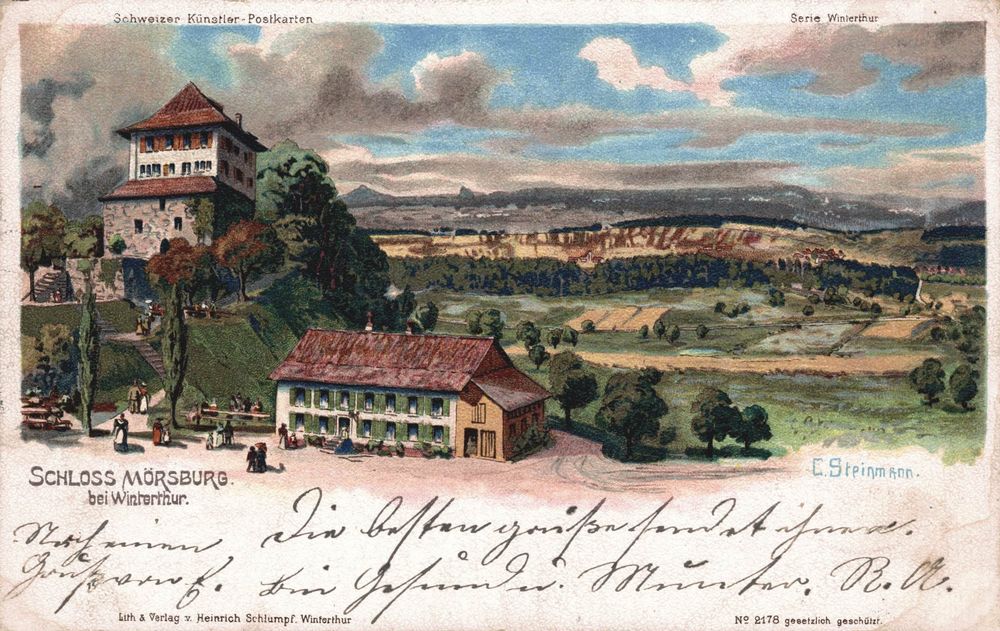 Schweizer Künstler-Postkarten
Serie Winterthur
C. Steinmann.
SCHLOSS MÖRSBURG.
bei Winterthur.
Die besten grüße sendet ihnen.
Noch einen
Gruß von E.
bin Gesund u. Munter. R. A.
Lith & Verlag v. Heinrich Schlumpf. Winterthur
No 2178 gesetzlich geschützt.